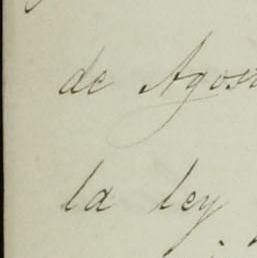 de Agos
la ley